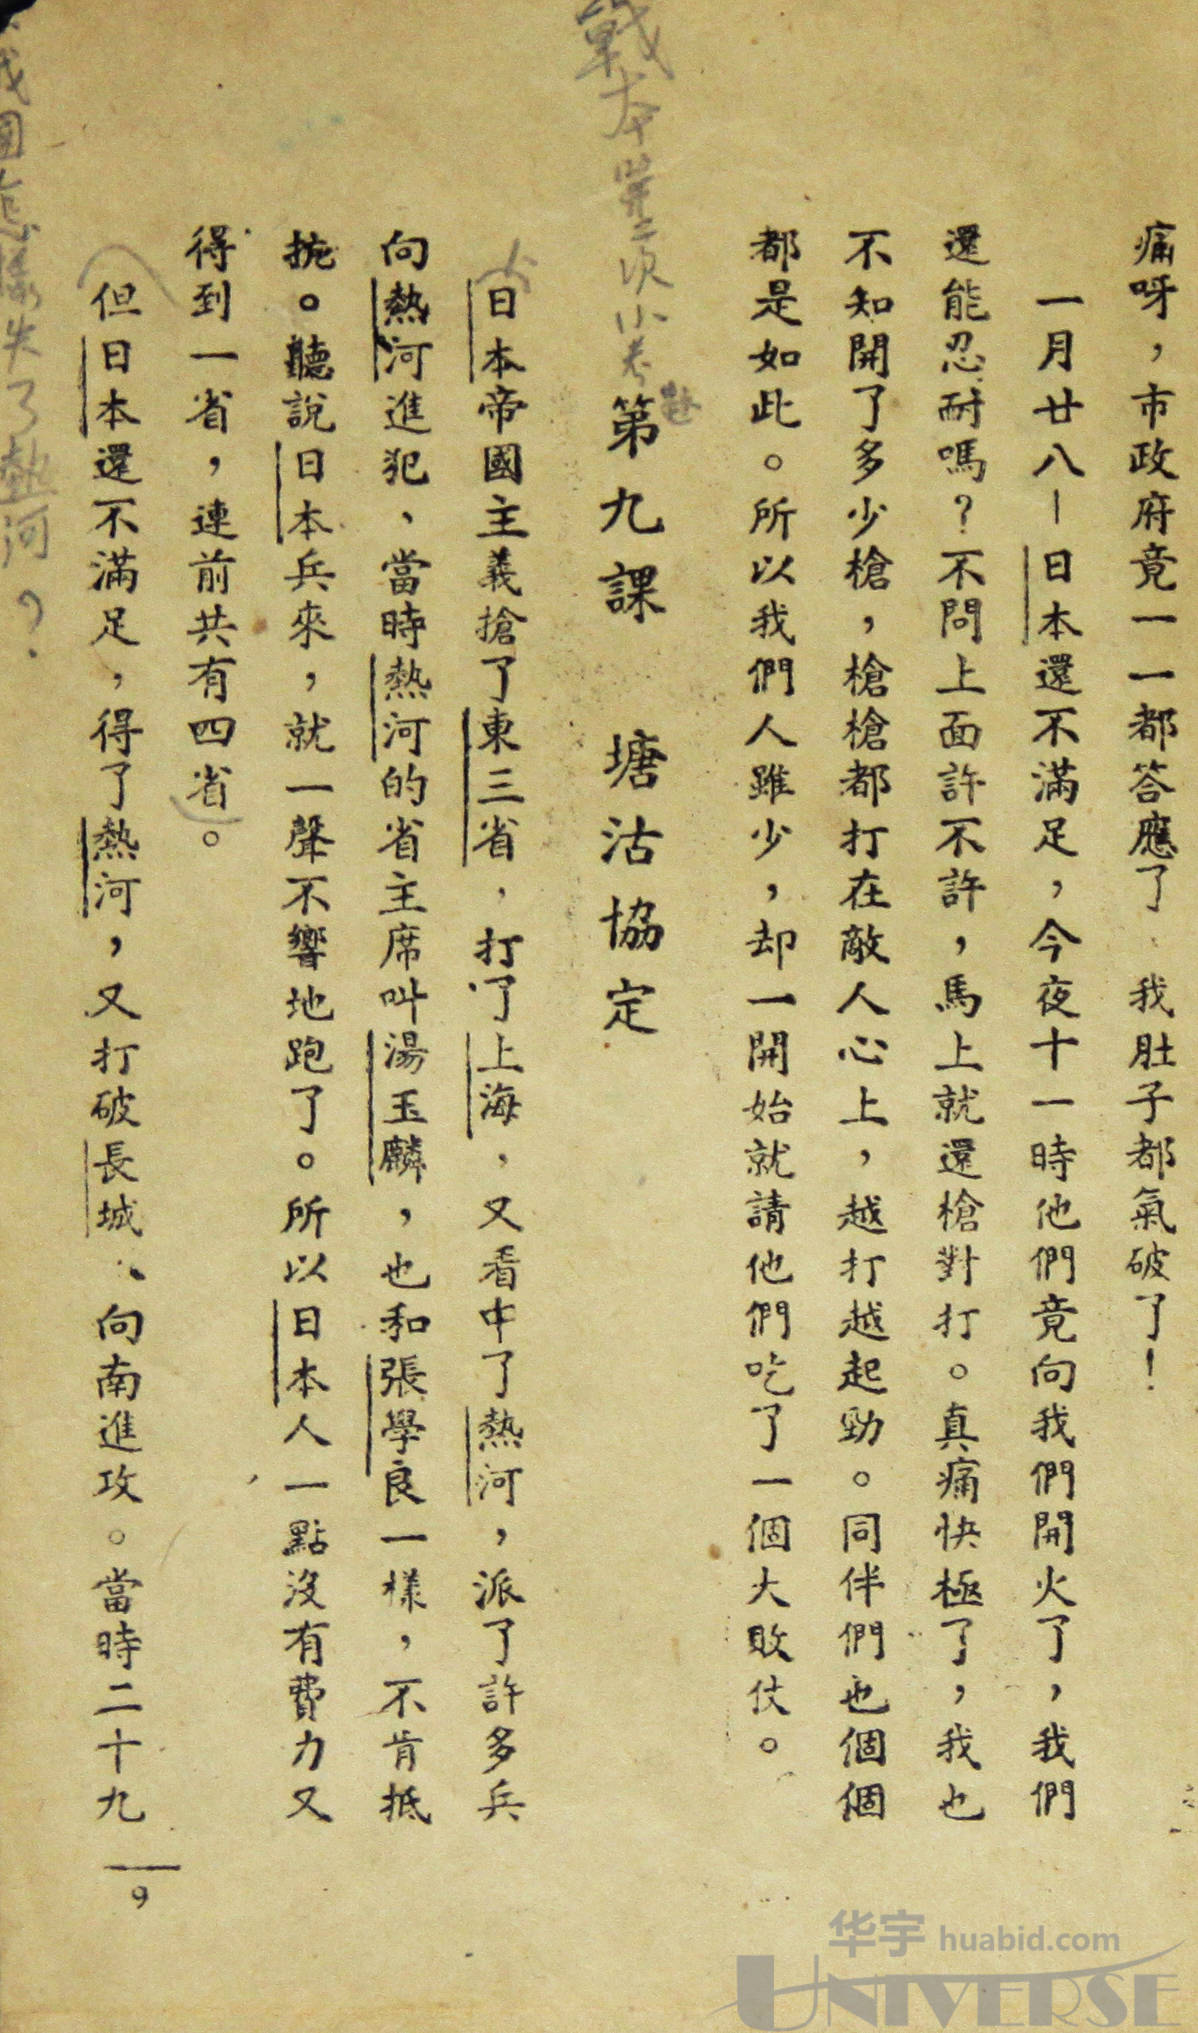 痛呀，市政府竟一一都答應了、我肚子都氣破了！
一月廿八—日本還不滿足，今夜十一時他們竟向我們開火了，我們
還能忍耐嗎？不問上面許不許，馬上就還槍對打。真痛快極了，我也
不知開了多少槍，槍槍都打在敵人心上，越打越起勁。同伴們也個個
都是如此。所以我們人雖少，却一開始就請他們吃了一個大敗仗。
第九課　塘沽協定
日本帝國主義搶了東三省，打了上海，又看中了熱河，派了許多兵
向熱河進犯、當時熱河的省主席叫湯玉麟，也和張學良一樣，不肯抵
抗。聽說日本兵來，就一聲不響地跑了。所以日本人一點沒有費力又
得到一省，連前共有四省。
但日本還不滿足，得了熱河，又打破長城、向南進攻。當時二十九
9
我國怎樣失了熱河？
华宇 huabid.com
UNIVERSE